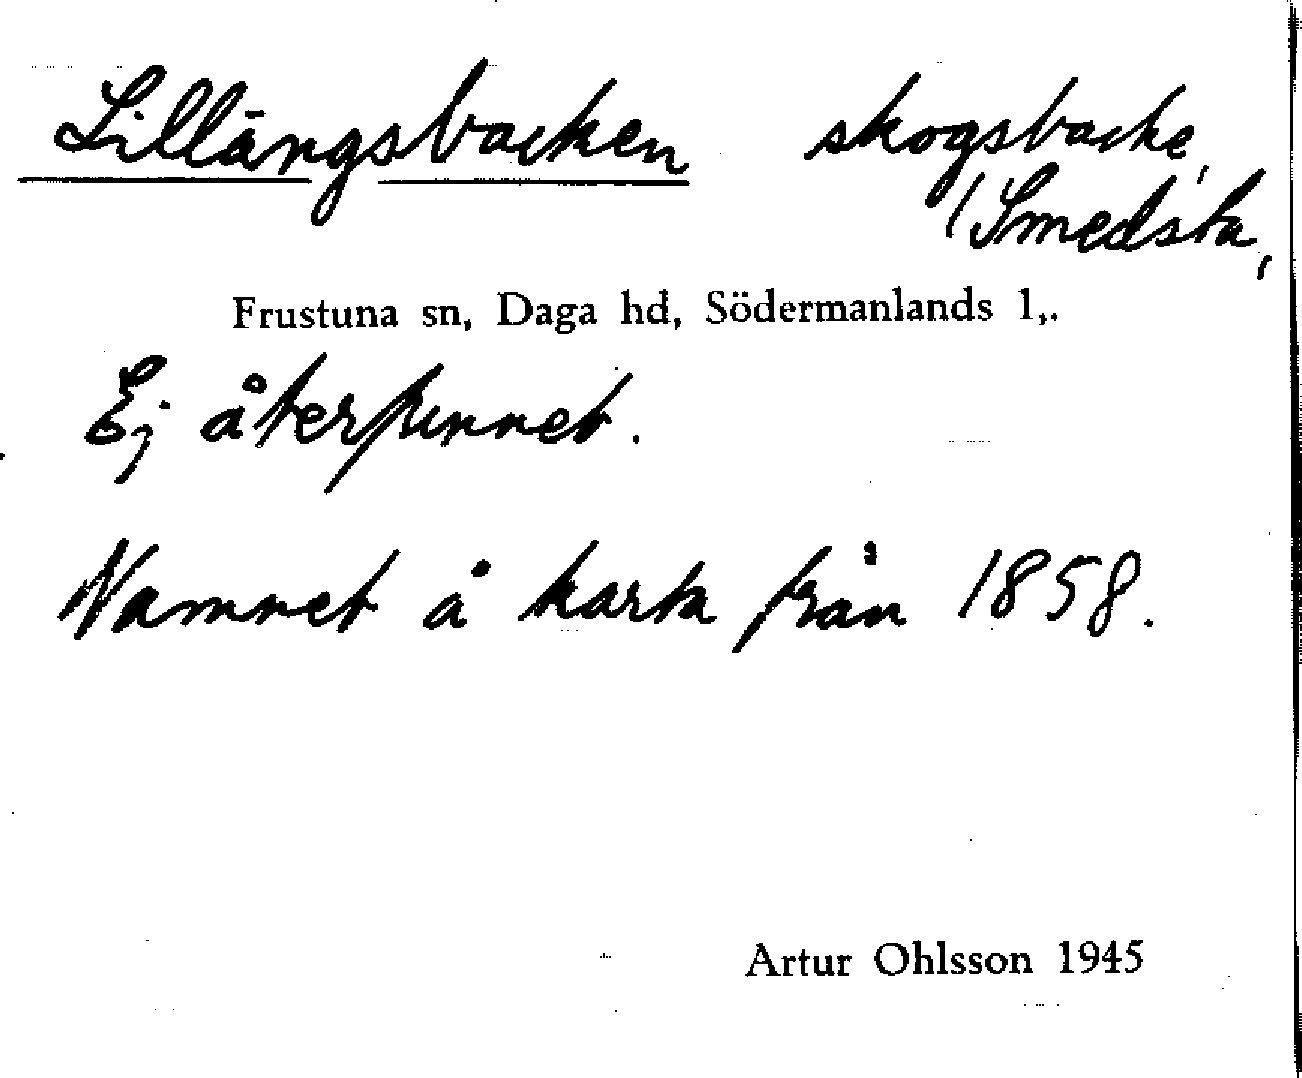 Lillängsbacken skogsbacke,
/Smedsta,
Frustuna sn, Daga hd, Södermanlands l,.
Ej återfunnet.
Namnet å karta från 1858.
Artur Ohlsson 1945